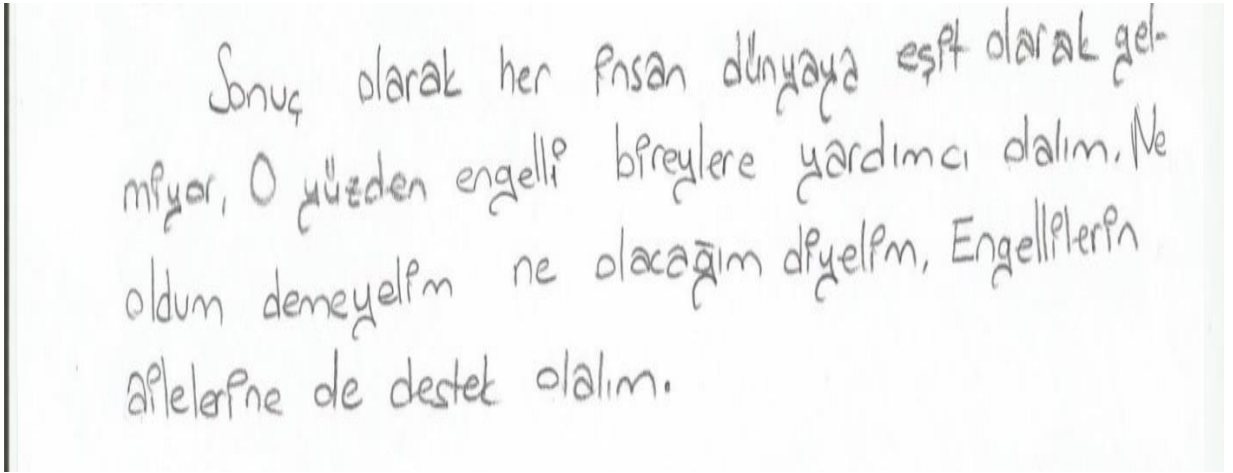 Sonuç olarak her insan dünyaya eşit olarak gel-
miyor, O yüzden engelli bireylere yardımcı olalım. Ne
oldum demeyelim ne olacağım diyelim, Engellilerin
ailelerine de destek olalım.